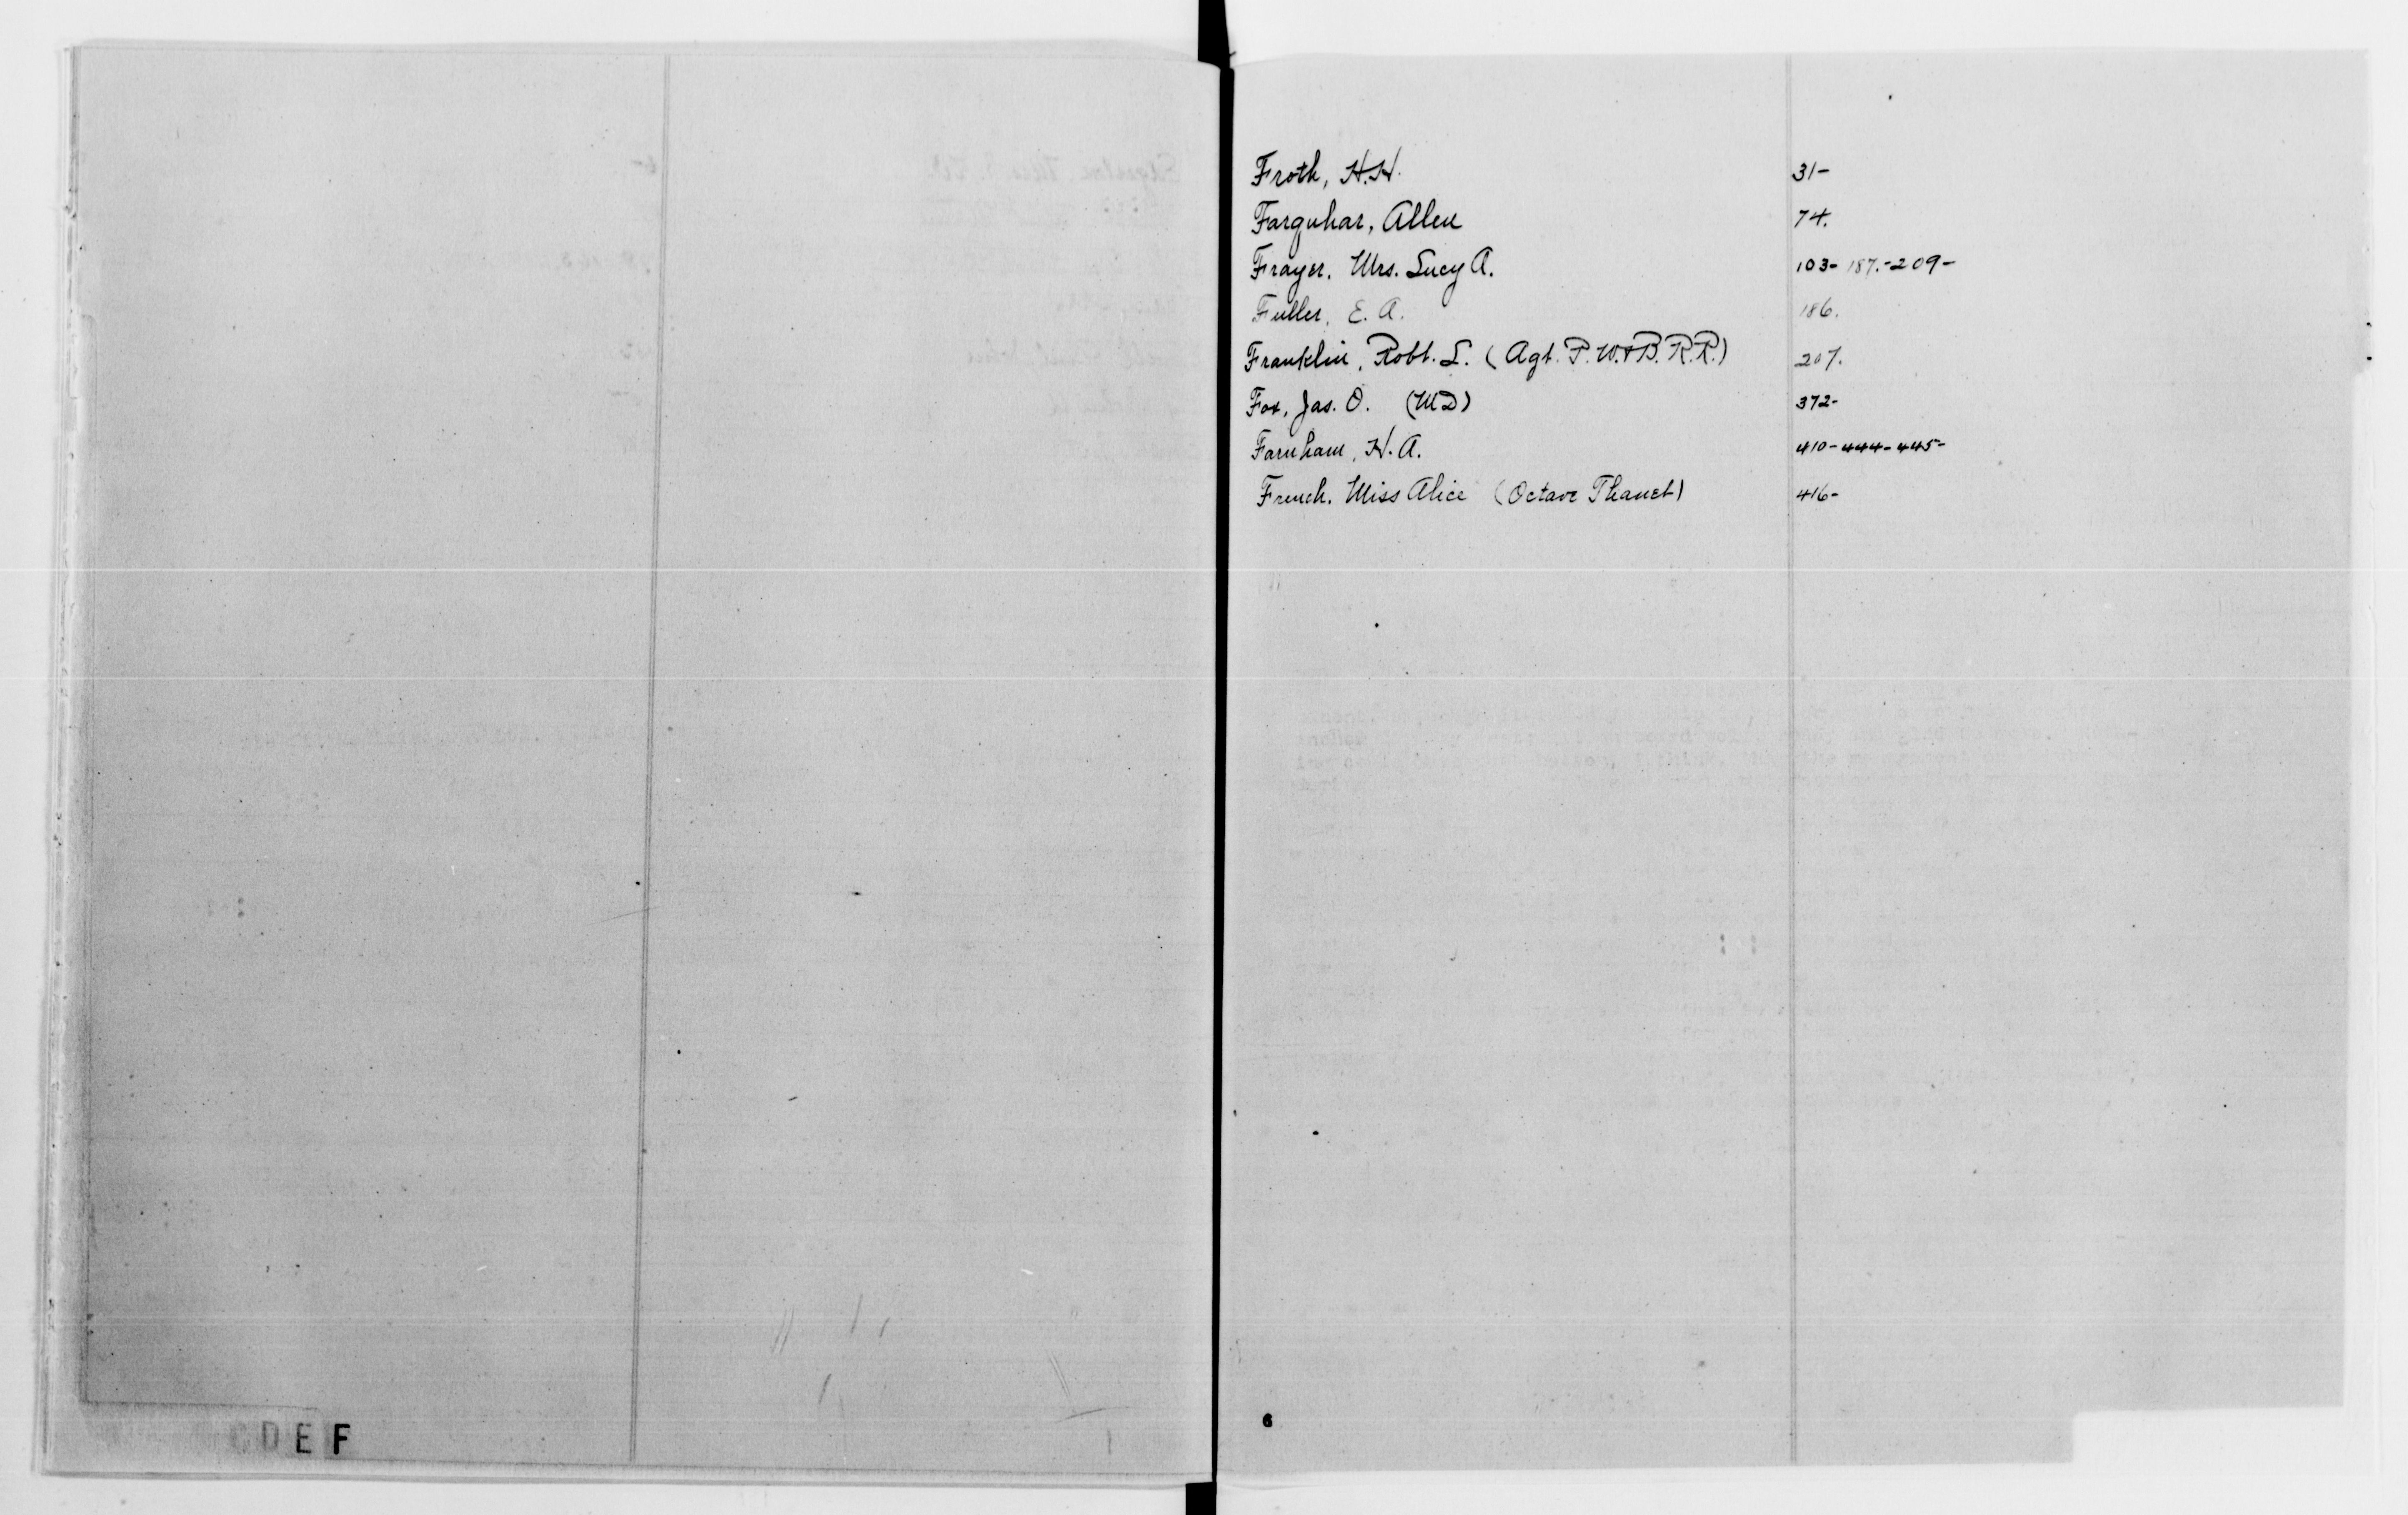 Froth, H.H. 31-
Farquhar, Allen 74.
Frayer, Mrs. Lucy A. 103-187.-209-
Fuller, E. A. 186.
Franklin, Robt. L. (Agt. P. W. & B. R. R.) 207.
Fox, Jas. O. (MD) 372-
Farnham, H. A. 410-444-445-
French, Miss Alice (Octave Thanet) 416-
C D E F
6